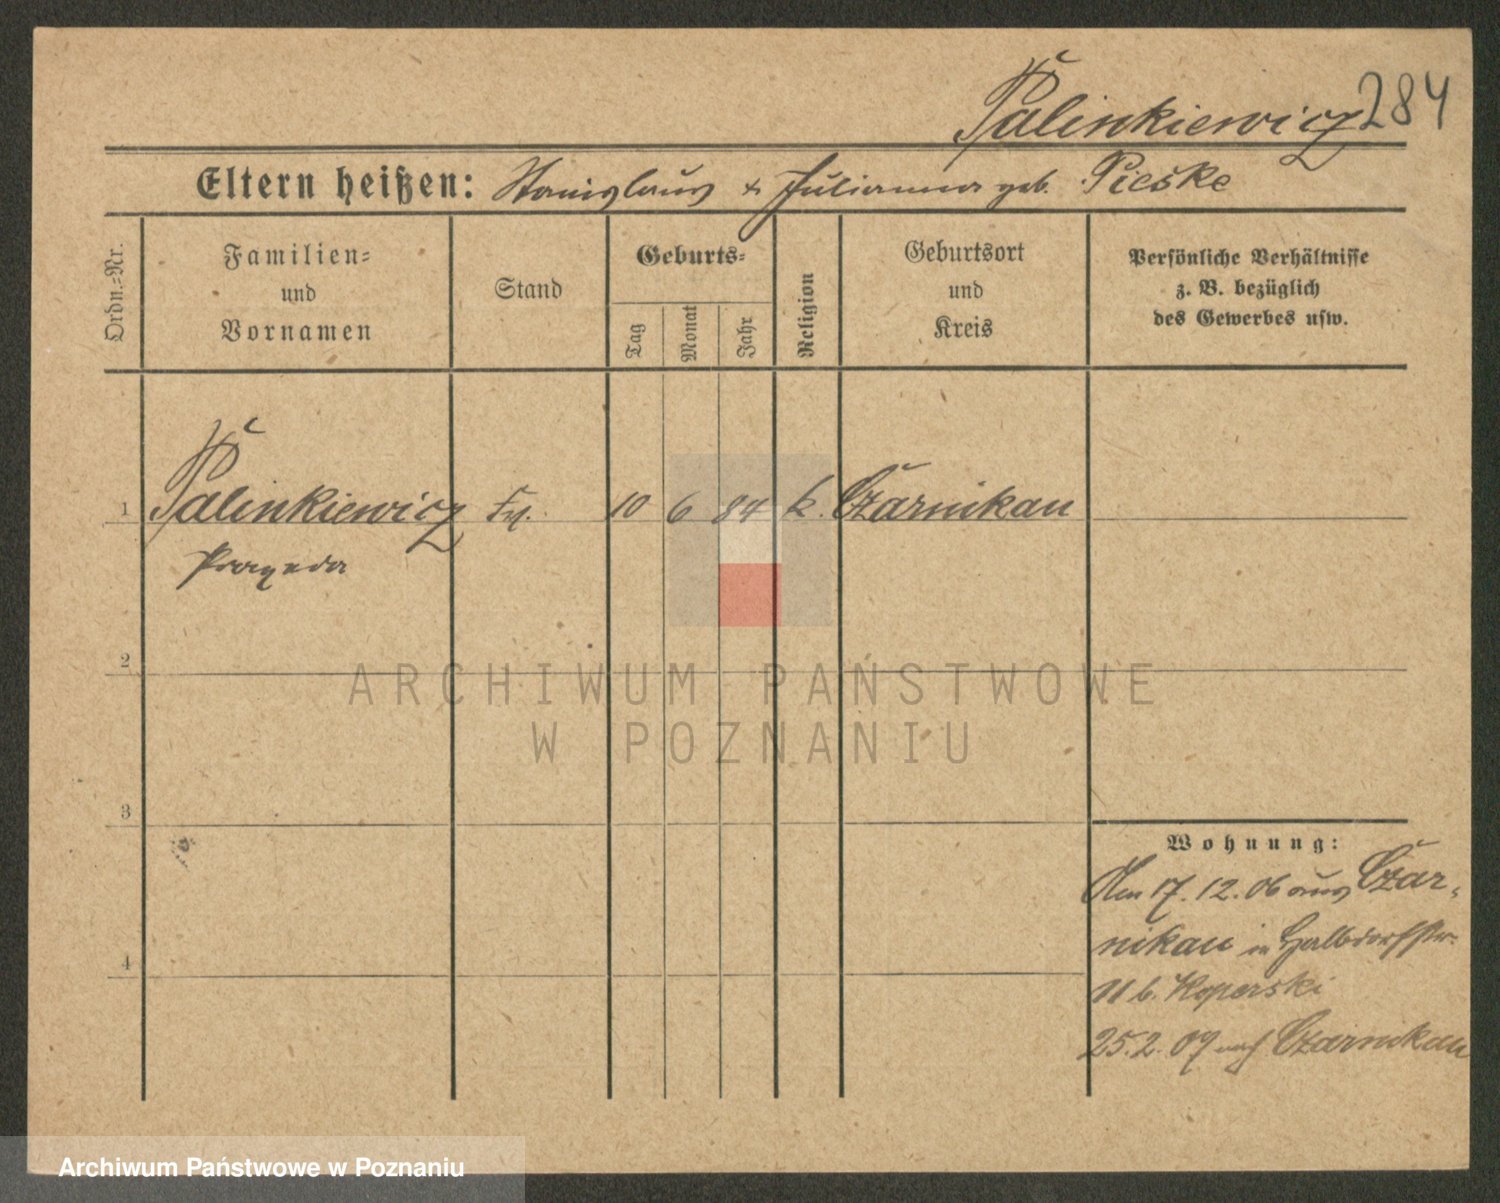 Palinkiewicz 284
Eltern heißen: Stanislaus & Julianna geb. Pieske
Ordn.=Nr.
Familien=
und
Vornamen
Stand
Geburts=
Tag
Monat
Jahr
Religion
Geburtsort
und
Kreis
Persönliche Verhältnisse
z. B. bezüglich
des Gewerbes usw.
1 Palinkiewicz Frl. 10 6 84 k. Czarnikau
Praxeda
2
3
4
Wohnung:
Am 17.12.06 aus Czar-
nikau in Halbdorfstr.
11 b. Koperski
25.2.07 nach Czarnikau
ARCHIWUM PAŃSTWOWE
W POZNANIU
Archiwum Państwowe w Poznaniu